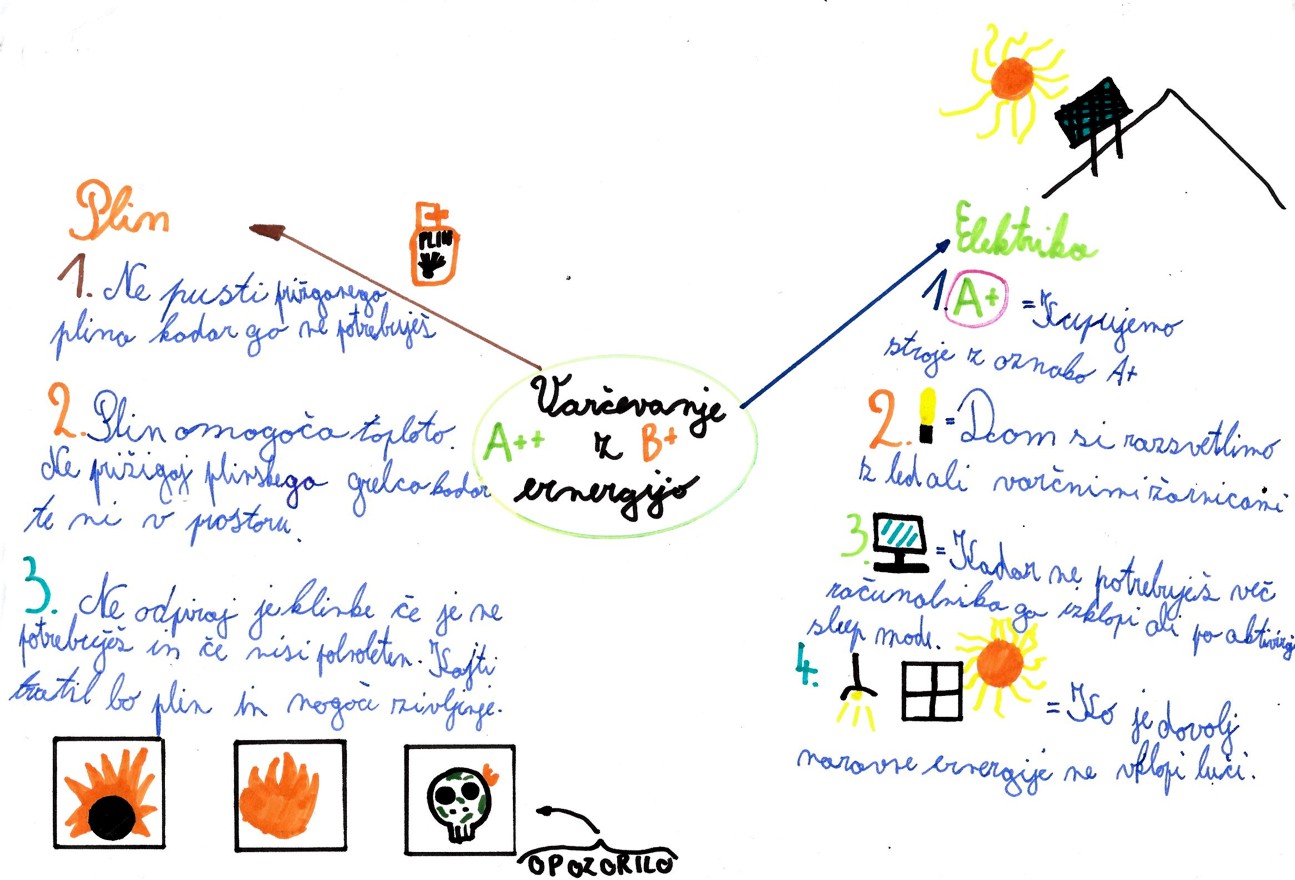 Plin
PLIN
1. Ne pusti prižganega
plina kadar ga ne potrebuješ
2. Plin omogoča toploto.
Ne prižigaj plinskega grelca kadar
te ni v prostoru.
3. Ne odpiraj jeklinke če je ne
potrebuješ in če nisi polnoleten. Kajti
tratil bo plin in mogoče življenje.
OPOZORILO
Varčevanje
A++ z B+
ernergijo
Elektrika
1. A+ = Kupujemo
stroje z oznako A+
2. = Dom si razsvetlimo
z led ali varčnimi žarnicami
3. = Kadar ne potrebuješ več
računalnika ga izklopi ali pa aktiviraj
sleep mode.
4. = Ko je dovolj
naravne ernergije ne vklopi luči.